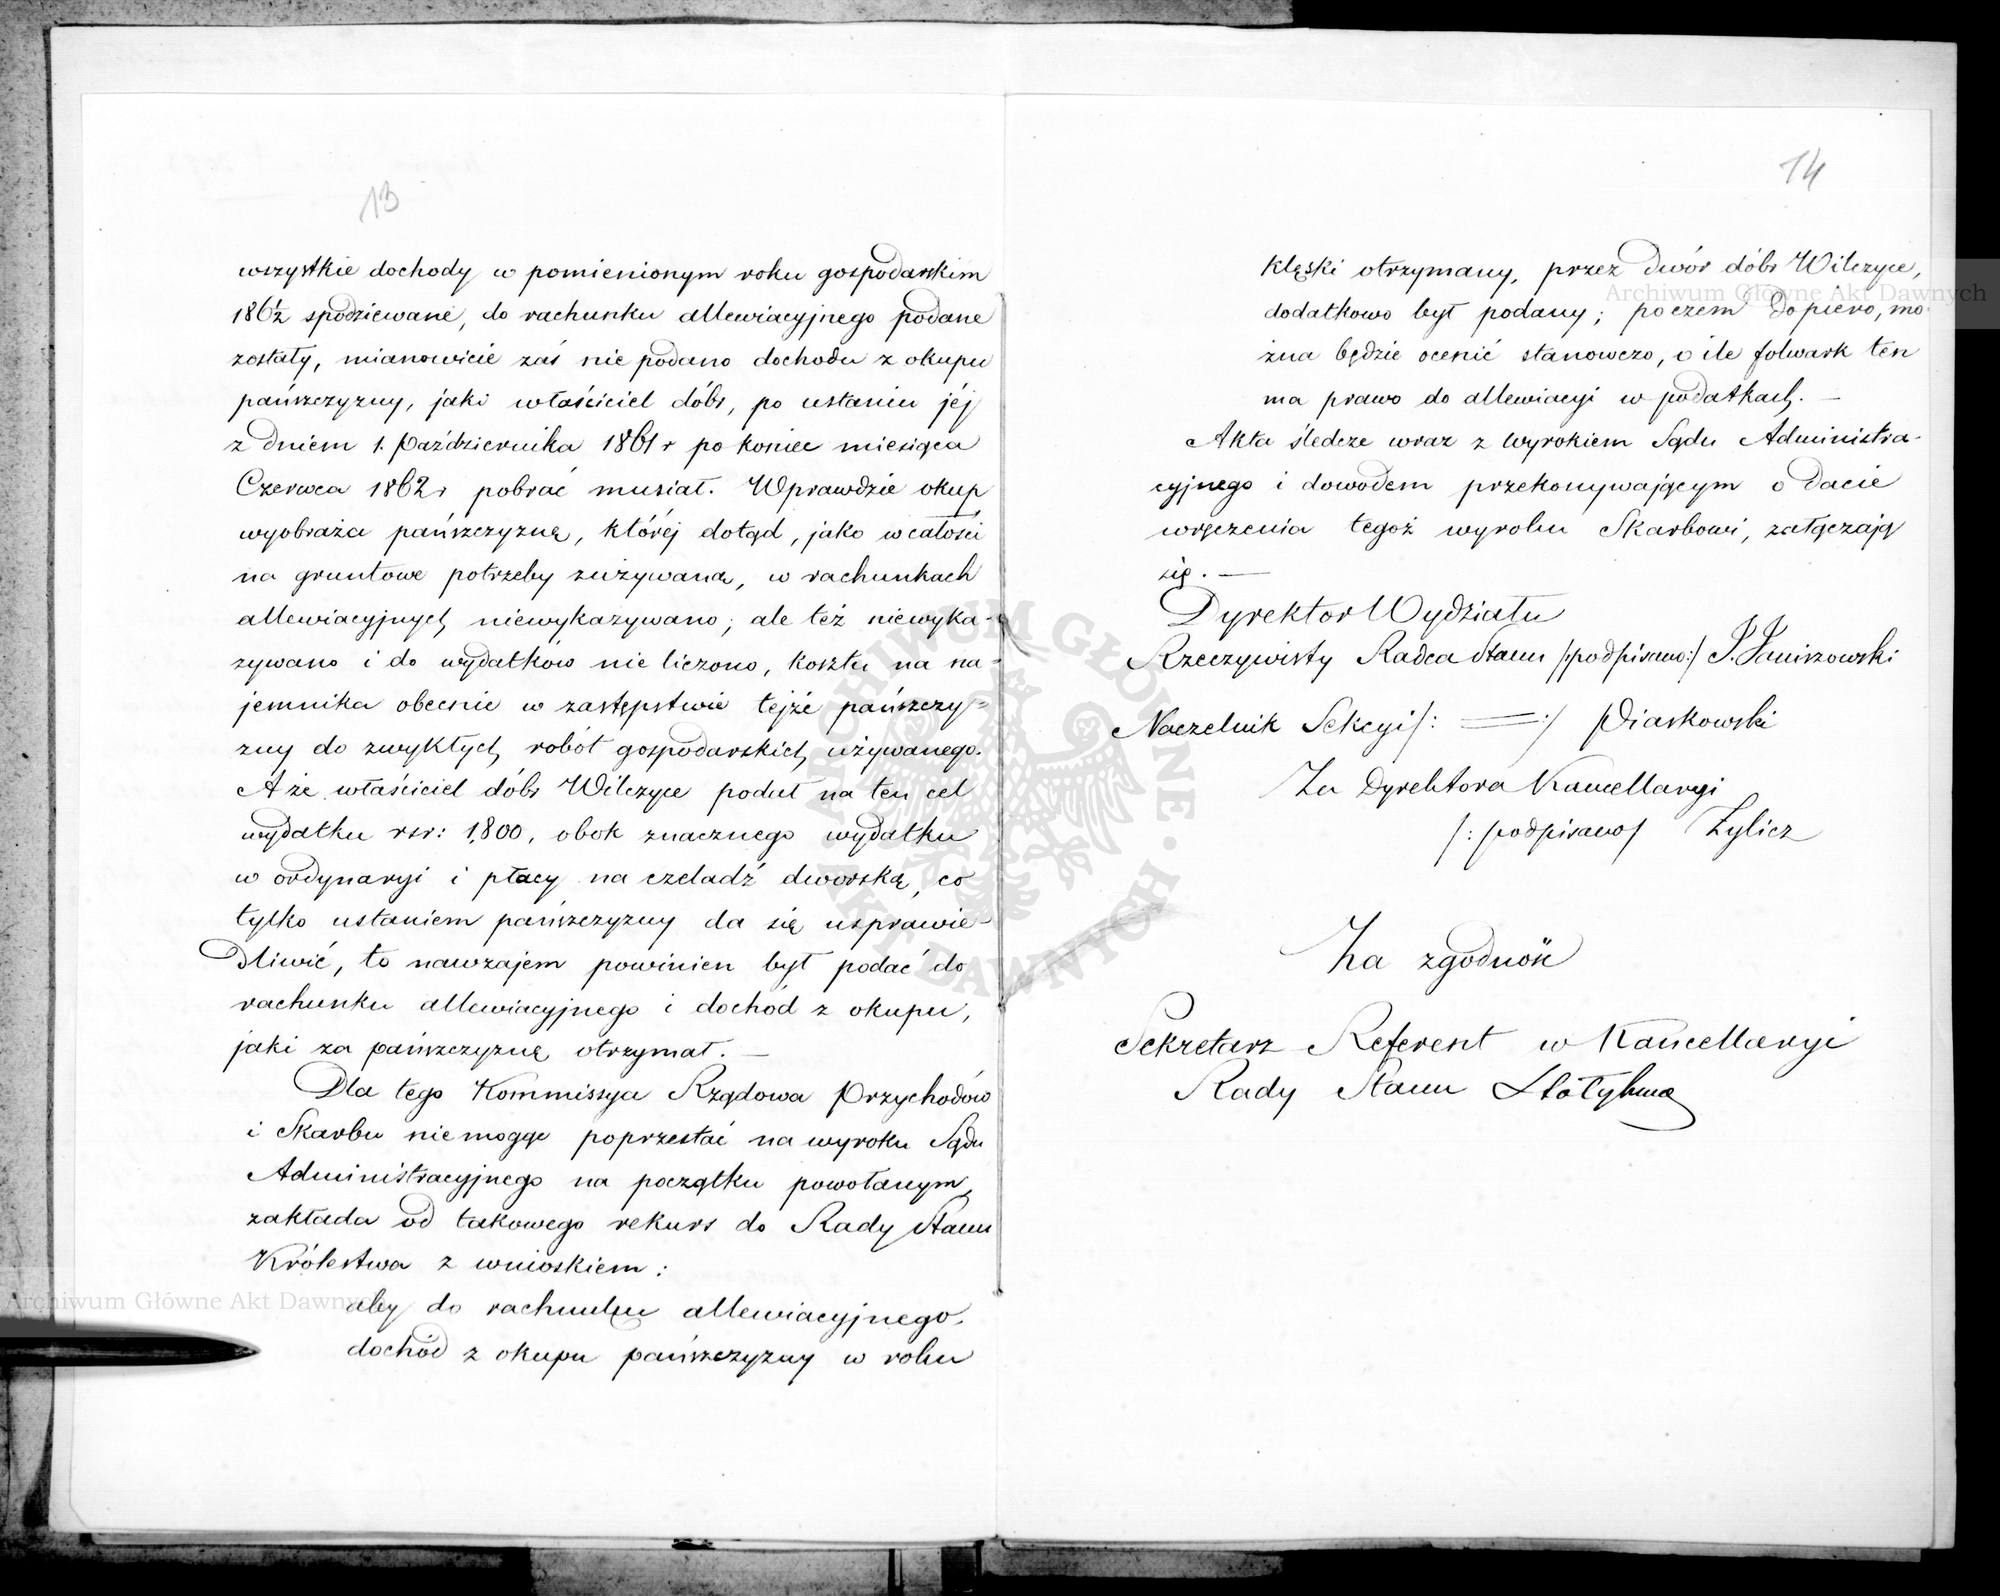 13
wszystkie dochody w pomienionym roku gospodarskim
186½ spodziewane, do rachunku allewiacyjnego podane
zostały, mianowicie zaś nie podano dochodu z okupu
pańszczyzny, jaki właściciel dóbr, po ustaniu jéj
z dniem 1. Października 1861 r po koniec miesiąca
Czerwca 1862 r pobrać musiał. Wprawdzie okup
wyobraża pańszczyznę, któréj dotąd, jako w całości
na gruntowe potrzeby zużywaną, w rachunkach
allewiacyjnych niewykazywano; ale też niewyka-
zywano i do wydatków nie liczono, kosztu na na-
jemnika obecnie w zastępstwie tejże pańszczy-
zny do zwykłych robót gospodarskich używanego.
A że właściciel dóbr Wilczyce podał na ten cel
wydatku rsr: 1,800, obok znacznego wydatku
w ordynaryi i płacy na czeladź dworską, co
tylko ustaniem pańszczyzny da się usprawie-
dliwić, to nawzajem powinien był podać do
rachunku allewiacyjnego i dochód z okupu,
jaki za pańszczyznę otrzymał. —
Dla tego Kommissya Rządowa Przychodów
i Skarbu niemogąc poprzestać na wyroku Sądu
Administracyjnego na początku powołanym,
zakłada od takowego rekurs do Rady Stanu
Królestwa z wnioskiem:
aby do rachunku allewiacyjnego,
dochód z okupu pańszczyzny w roku
14
klęski otrzymany, przez dwór dóbr Wilczyce,
dodatkowo był podany; poczem dopiero, mo-
żna będzie ocenić stanowczo, o ile folwark ten
ma prawo do allewiacyi w podatkach. —
Akta śledcze wraz z wyrokiem Sądu Administra-
cyjnego i dowodem przekonywającym o dacie
wręczenia tegoż wyroku Skarbowi, załączają
się. —
Dyrektor Wydziału
Rzeczywisty Radca Stanu /:podpisano:/ J. Janiszowski
Naczelnik Sekcyi /: = :/ Piaskowski
Za Dyrektora Kancellaryi
/: podpisano/ Żylicz
Za zgodność
Sekretarz Referent w Kancellaryi
Rady Stanu
Archiwum Główne Akt Dawnych
Archiwum Główne Akt Dawnych
ARCHIWUM GŁÓWNE AKT DAWNYCH